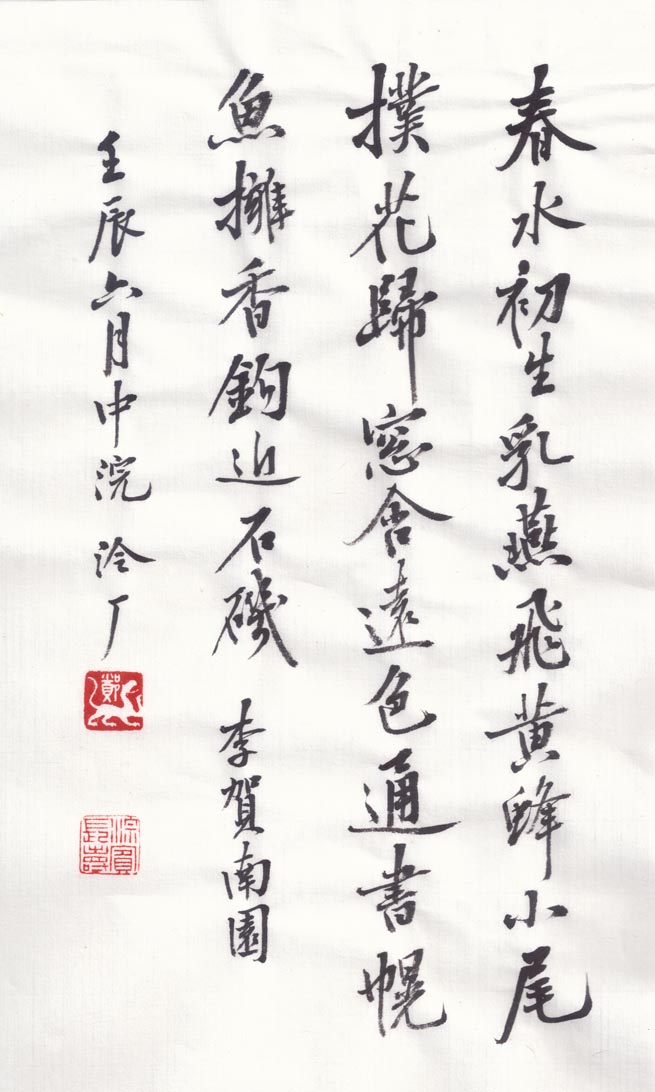 春水初生乳燕飛黄蜂小尾
撲花歸窓含遠色通書幌
魚擁香鉤近石磯 李賀南園
壬辰六月中浣 泠厂
鄭